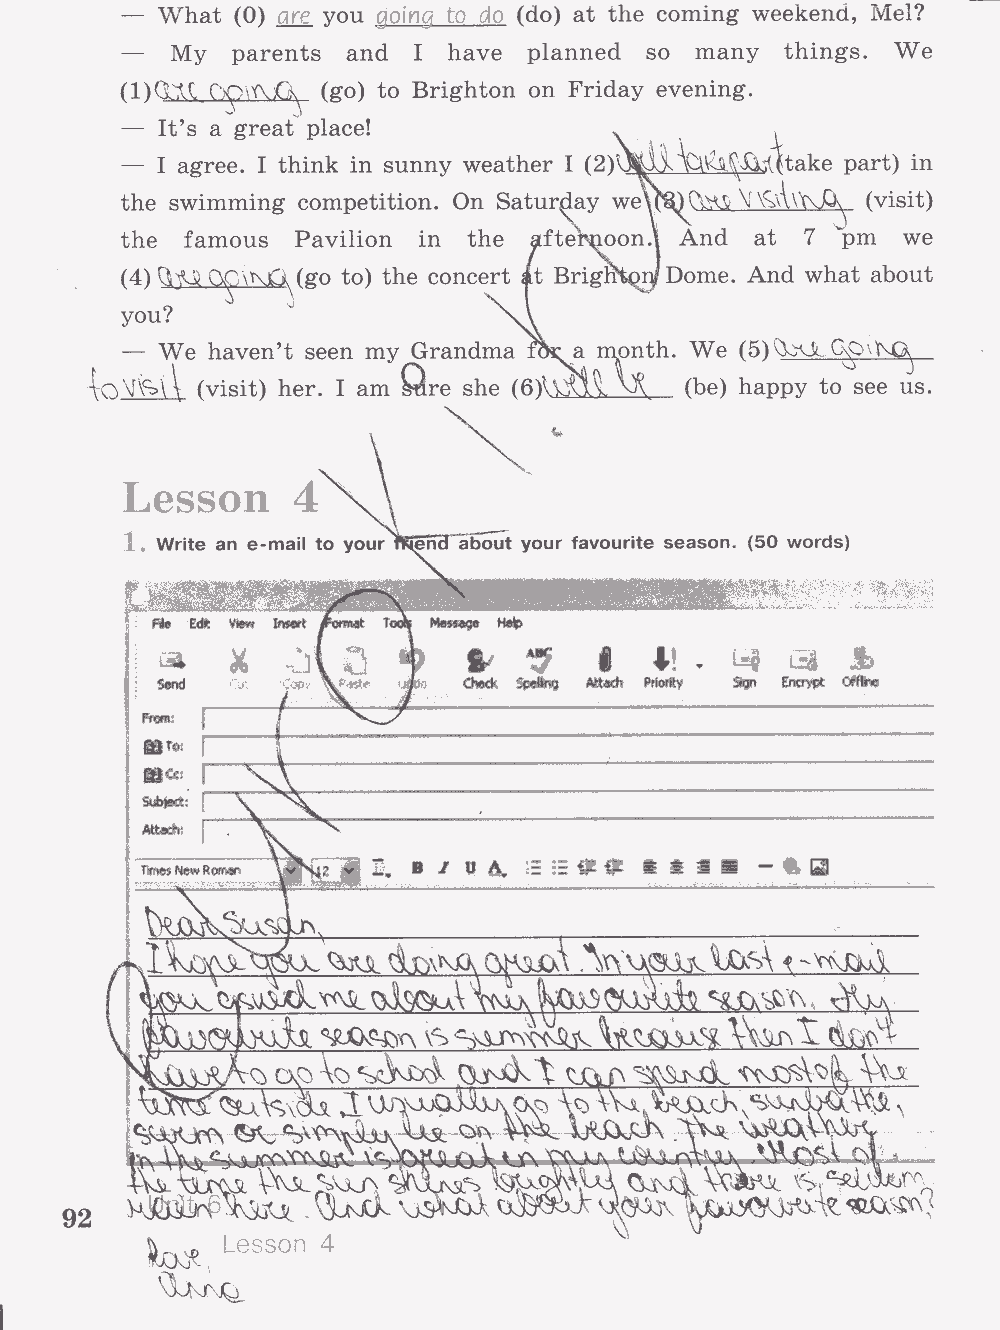 — What (0) are you going to do (do) at the coming weekend, Mel?
— My parents and I have planned so many things. We
(1) are going (go) to Brighton on Friday evening.
— It's a great place!
— I agree. I think in sunny weather I (2) will take part (take part) in
the swimming competition. On Saturday we (3) are visiting (visit)
the famous Pavilion in the afternoon. And at 7 pm we
(4) are going (go to) the concert at Brighton Dome. And what about
you?
— We haven't seen my Grandma for a month. We (5) are going
to visit (visit) her. I am sure she (6) will be (be) happy to see us.
Lesson 4
1. Write an e-mail to your friend about your favourite season. (50 words)
File Edit View Insert Format Tools Message Help
ABC
Send Cut Copy Paste Undo Check Spelling Attach Priority Sign Encrypt Offline
From:
To:
Cc:
Subject:
Attach:
Times New Roman 12 B I U A
Dear Susan,
I hope you are doing great. In your last e-mail
you asked me about my favourite season. My
favourite season is summer because then I don't
have to go to school and I can spend most of the
time outside. I usually go to the beach, sunbathe,
swim or simply lie on the beach. The weather
in the summer is great in my country. Most of
the time the sun shines brightly and there is
here. And what about your favourite season?
92
Lesson 4
Love,